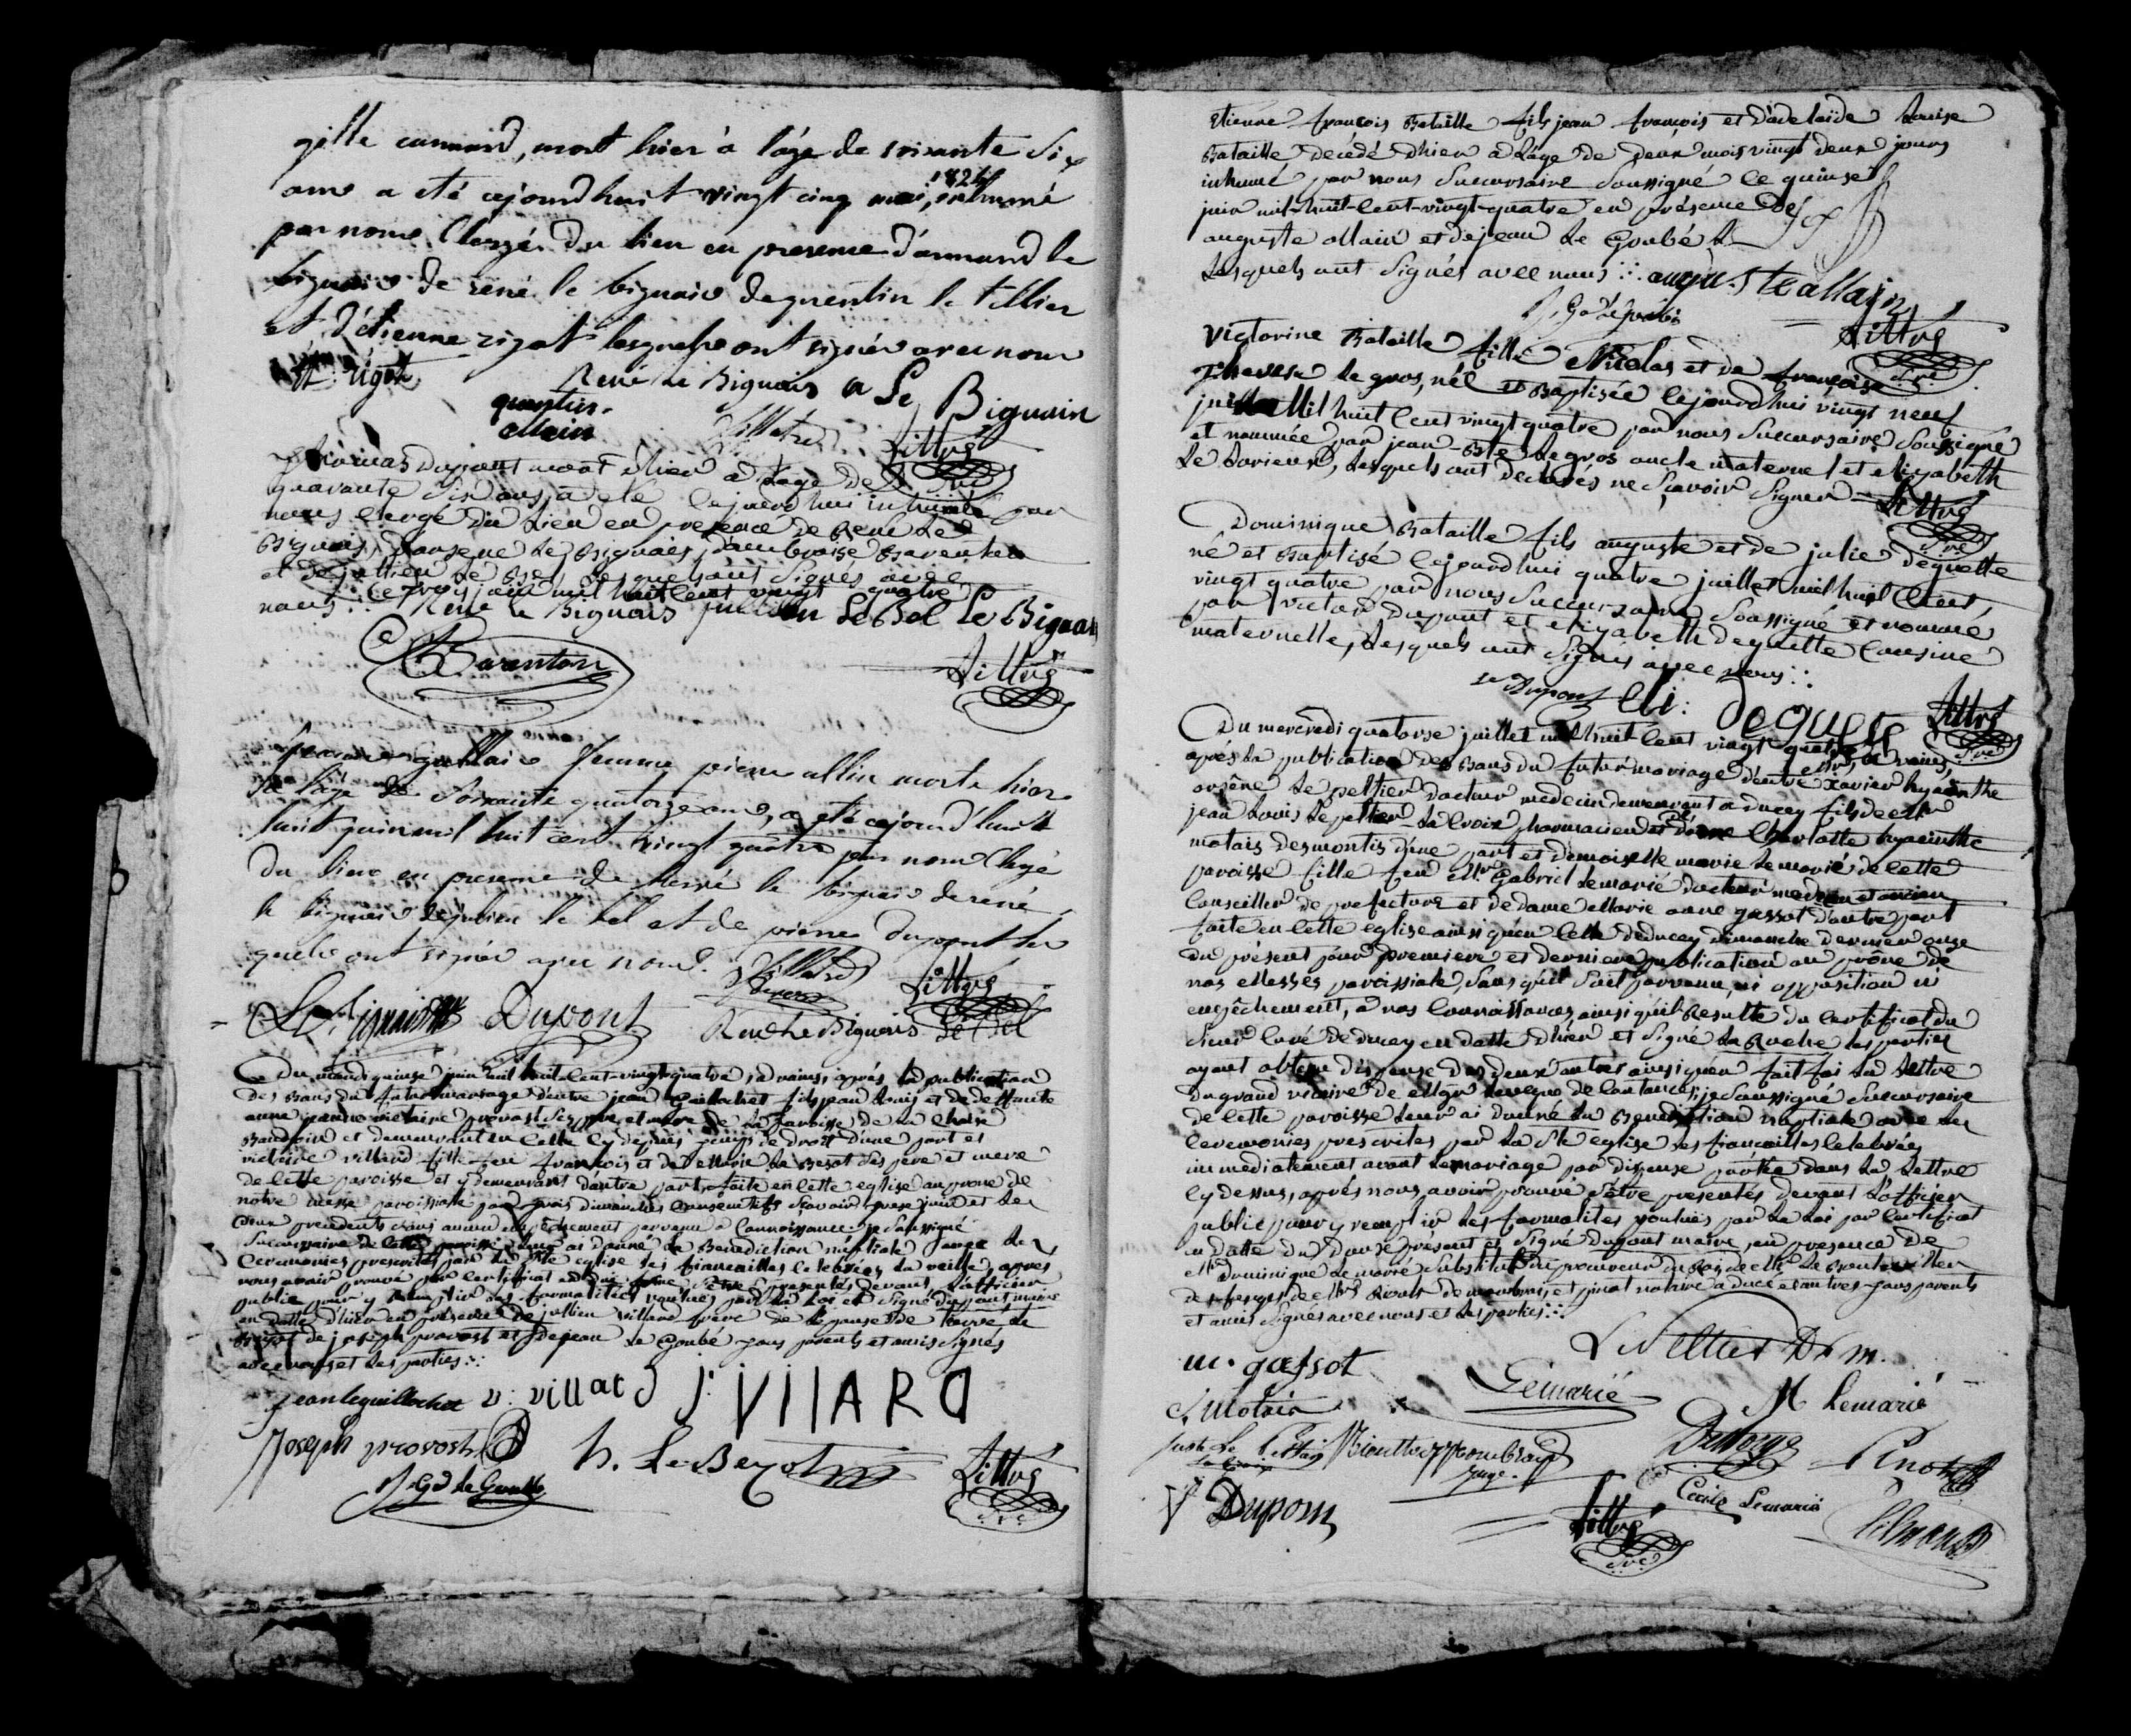 gille cannard, mort hier à l'âge de soixante six
ans a eté cejourdhuit vingt cinq mai, 1824 inhumé
par nous Clergé du lieu en presence d'armand le
bignais de rené le bignais de quentin le tellier
et d'étienne rigot lesquels ont signés avec nous
et rigot
René le Bignais a Le Bignain
quentin
allain
Littré
thomas dupont mort d'hier a l'age de
quarante six ans, a eté cejourdhui inhumé par
nous clergé du lieu en presence de René Le
Bignais, Le Bignais, d'ambroise Barenton
et de jullien Le Bel lesquels ont signés avec
nous ce trois juin mil huit cent vingt quatre
René le Bignais jullien Le Bel Le Bignais
Barenton
Littré
femme pierre allin morte hier
à l'âge de soixante quatorze ans, a eté cejourd'huit
huit juin mil huit cent vingt quatre par nous Clergé
du lieu en presence de le bignais de rené
le bignais de julien le bel et de pierre dupont les
quels ont signés avec nous.
Littré
Le Bignais Dupont René Le Bignais Le Bel
Du mardi quinze juin mil huit-cent-vingt-quatre, à vains, après la publication
des Bans du futur mariage d'entre jean fils jean Louis et de deffunte
anne jeanne victoire provost ses père et mère de la paroisse de la Chaise
Baudouin et demeurant en cette cy depuis temps de droit d'une part et
victoire villard fille feu françois et de Marie Le Besot ses père et mère
de cette paroisse et y demeurant d'autre part, faite en cette eglise au prone de
notre messe paroissiale par trois dimanches consécutifs scavoir treize juin et les
deux précédents sans aucun empêchement parvenu a connoissance: je soussigné
succursaire de cette paroisse leur ai donné la Benediction nuptiale avec les
ceremonies prescrites par la Ste eglise les fiancailles celebrées la veille, après
nous avoir prouvé par certificat en due forme s'être présentés devant l'officier
public pour y remplir les formalités voulues par la Loi et signé dupont maire
en datte d'hier en présence de jullien villard frère de l'epouse de
de joseph provost et de jean Le Goubé tous parents et amis signés
avec nous et les parties
jean leguillochet v: villard j: VIllARD
Joseph provost h. Le Bezot
J. Gd le Goubé
Littré
Etienne françois Bataille fils jean françois et d'adelaide Louise
Bataille decédé d'hier à l'âge de deux mois vingt deux jours
inhumé par nous Succursaire Soussigné ce quinze
juin mil-huit-cent-vingt-quatre en présence de
auguste allain et de jean Le Goubé
Lesquels ont signés avec nous : auguste allain
Littré
Victorine Bataille fille Nicolas et de françoise
therese Legros, née et Baptisée cejourdhui vingt neuf
juin Mil huit Cent vingt quatre par nous Succursaire Soussigné
et nommée par jean-Bte Legros oncle maternel et elizabeth
Le Sorieux, lesquels ont déclarés ne scavoir signer
Littré
Dominique Bataille fils auguste et de julie deguette
né et Baptisé cejourdhui quatre juillet mil huit Cent
vingt quatre par nous Succursaire Soussigné et nommé
par victor Dupont et elizabeth deguette Cousine
maternelle, lesquels ont signés avec nous
V Dupont Eli: Deguette Littré
Du mercredi quatorse juillet mil huit cent vingt quatre, à vains,
après la publication des Bans du futur mariage d'entre Mr xavier hyacinthe
arsène Le peltier docteur medecin demeurant a ducey fils de Mr
jean Louis Le peltier La Croix pharmacien et de dame Charlotte hyacinthe
matais desmontis d'une part et demoiselle marie Lemarié de cette
paroisse fille feu Mr Gabriel Lemarié docteur medecin et ancien
Conseiller de prefecture et de dame Marie anne gassot d'autre part
faite en cette eglise ainsi qu'en celle de ducey dimanche dernier onze
du présent pour premiere et derniere publication au prône de
nos Messes paroissiale, sans qu'il soit parvenu, ni opposition ni
empêchement, a nos Connoissances, ainsi qu'il Resulte du certificat du
sieur Curé de ducey en datte d'hier et signé La Roche les parties
ayant obtenu dispense des deux autres ainsi qu'en fait foi la Lettre
du grand vicaire de Mgr Leveque de Coutances; je Soussigné Succursaire
de cette paroisse leur ai donné la Benediction nuptiale avec les
ceremonies prescrites par la Ste eglise les fiancailles celebrées
immediatement avant le mariage par dispense portée dans la Lettre
cy dessus, après nous avoir prouvé s'être presentés devant l'officier
public pour y remplir les formalites voulues par la Loi par certificat
en datte du douze présent et signé dupont maire, en presence de
Mr dominique Lemarié Substitut du procureur du Roi de
de Mr de et pinot notaire a ducé et autres tous parents
et amis signés avec nous et les parties
Le Peltier D. m.
m. gassot
Lemarié M Lemarié
Matais
Pinot
Cecile Lemarié
V Dupont
Littré